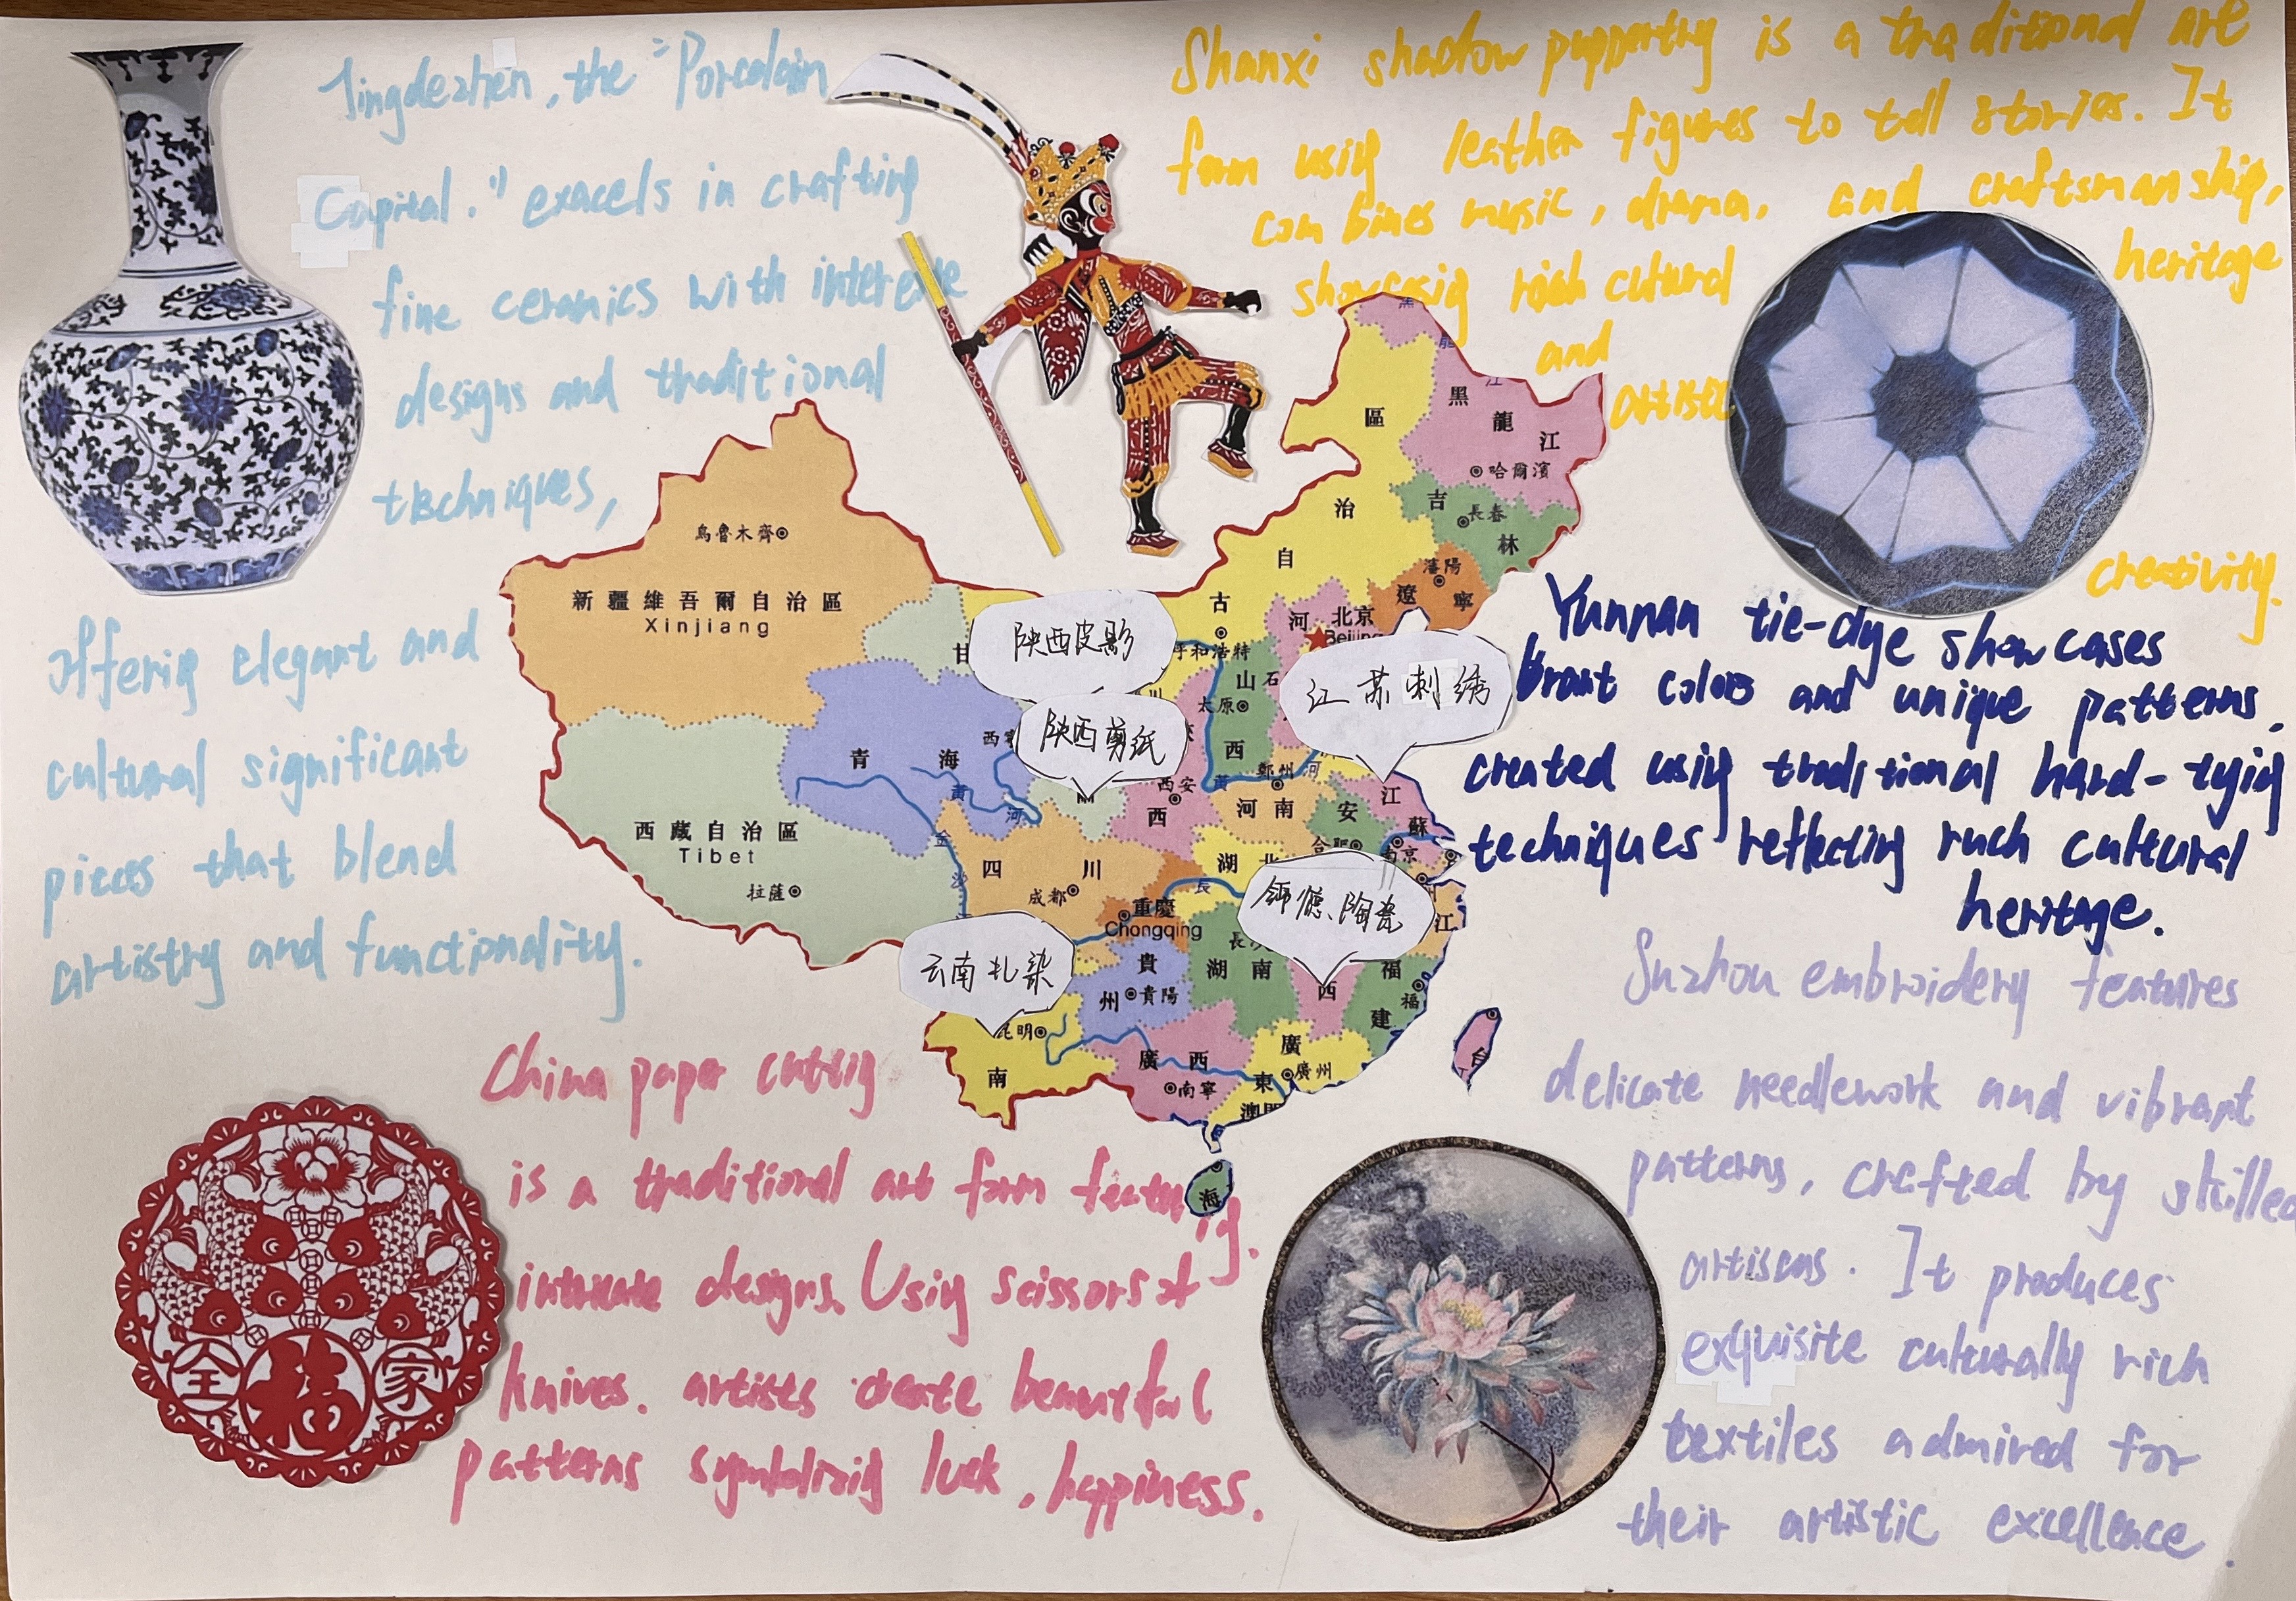 Jingdezhen, the "Porcelain
Capital." exacels in crafting
fine ceramics with
designs and traditional
techniques,
offering elegant and
cultural significant
pieces that blend
artistry and functionality.
Shanxi shadow puppertry is a traditional art
form using leather figures to tell stories. It
combines music, drama, and craftsmanship,
showcasig cultural
heritage
and
artistic
creativity.
Yunnan tie-dye showcases
brant colors and unique patterns,
created using traditional hard-tying
techniques reflecting ruch cultural
heritage.
Suzhou embroidery features
delicate needlework and vibrant
patterns, crafted by skilled
artiscas. It produces
exquisite culturally rich
textiles admired for
their artistic excellence.
China paper cuttig
is a traditional art form featurig.
designs. Using scissors
knives. artists create beautiful
patterns symbolizig luck, happiness.
全福家
陕西皮影
陕西剪纸
江苏刺绣
陶瓷
云南扎染
黑
龍
江
黑龍江
哈爾濱
區
治
自
古
吉林
長春
瀋陽
遼寧
烏魯木齊
新疆維吾爾自治區
Xinjiang
甘
呼和浩特
河
北京
Beijing
山西
太原
石
川
青海
西寧
黃河
西安
西
鄭州
黃河
河南
安
合肥
江蘇
南京
西藏自治區
Tibet
拉薩
金沙江
四川
成都
重慶
Chongqing
湖北
長
江
長沙
湖南
西
福建
福
貴州
貴陽
昆明
南
廣西
南寧
廣東
廣州
澳門
海
台